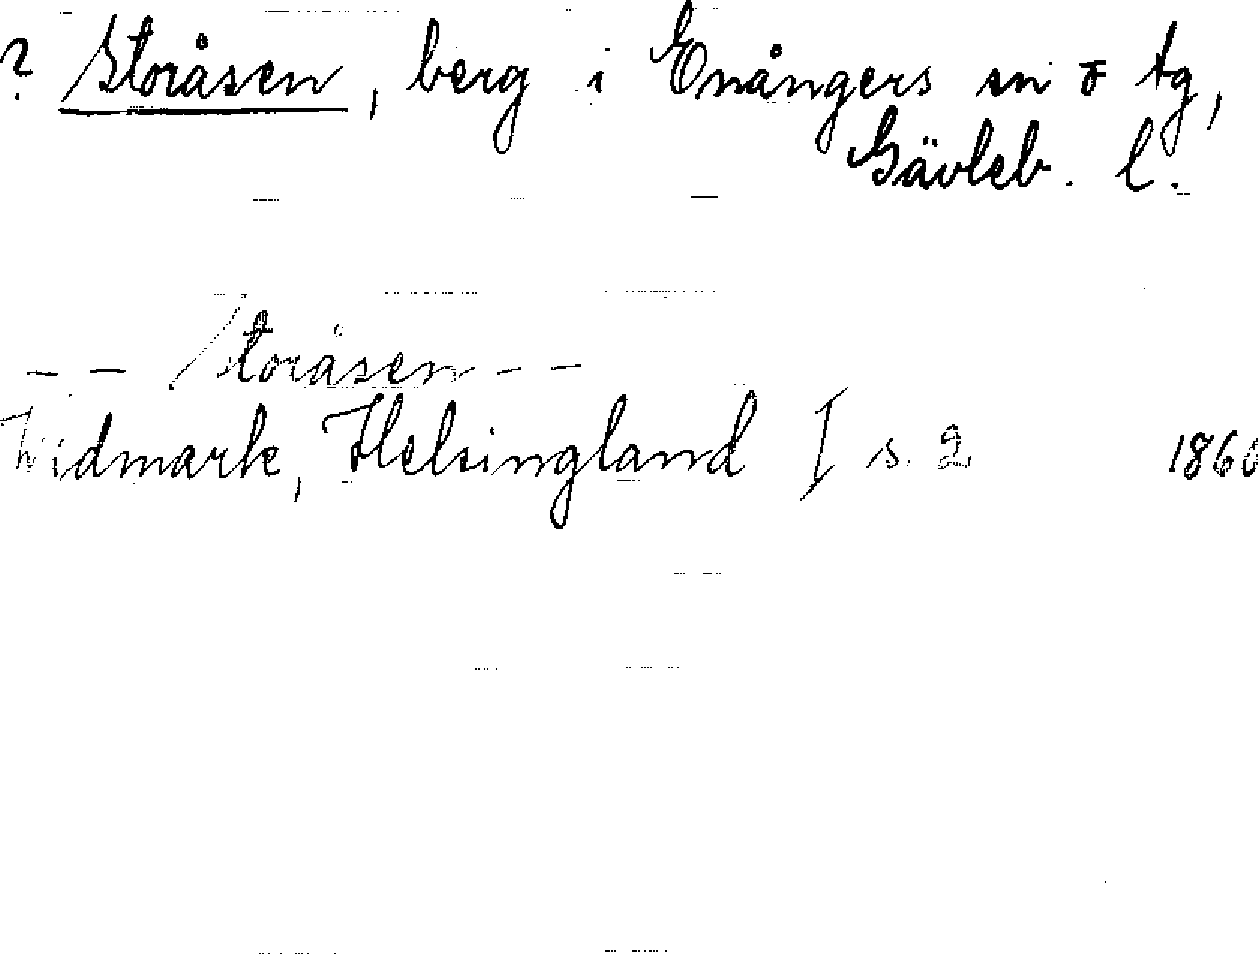 ? Storåsen, berg i Enångers sn o tg,
Gävleb. l.
-- Storåsen --
Widmark, Helsingland I s. 2 1860